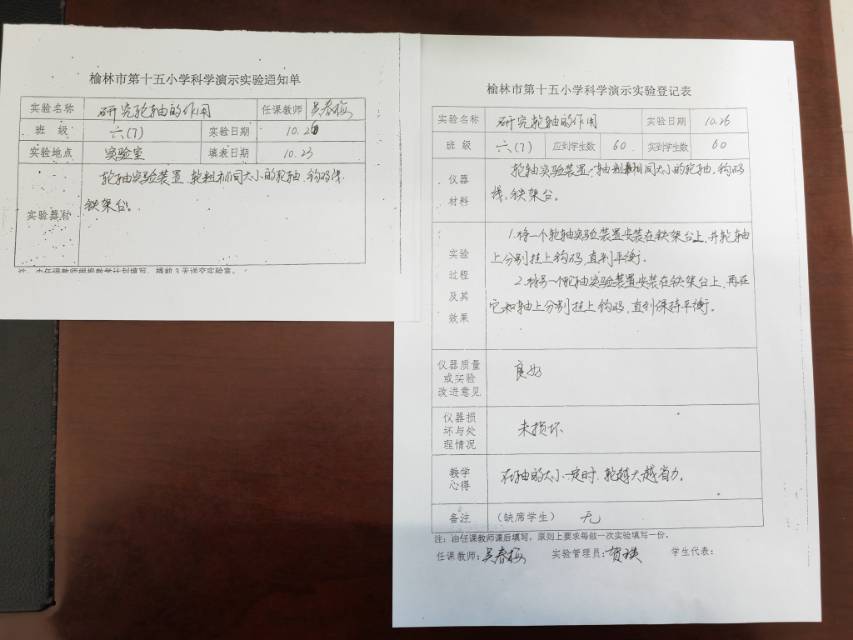 榆林市第十五小学科学演示实验通知单
实验名称 研究轮轴的作用 任课教师 吴春梅
班 级 六(7) 实验日期 10.26
实验地点 实验室 填表日期 10.23
实验器材 轮轴实验装置、轮粗不同大小的轮轴、钩码、线、
铁架台。
注:由任课教师根据教学计划填写,提前3天送交实验室。
榆林市第十五小学科学演示实验登记表
实验名称 研究轮轴的作用 实验日期 10.26
班 级 六(7) 应到学生数 60 实到学生数 60
仪器材料 轮轴实验装置、轴粗不同大小的轮轴、钩码
线、铁架台。
实验过程及其效果
1.将一个轮轴实验装置安装在铁架台上,并轮轴
上分别挂上钩码,直到平衡。
2.将另一个轮轴实验装置安装在铁架台上,再在
它和轴上分别挂上钩码,直到保持平衡。
仪器质量或实验改进意见 良好
仪器损坏与处理情况 未损坏
教学心得 轴的大小一定时,轮越大越省力。
备注 (缺席学生) 无
注:由任课教师课后填写,原则上要求每做一次实验填写一份。
任课教师:吴春梅 实验管理员:贺瑛 学生代表: